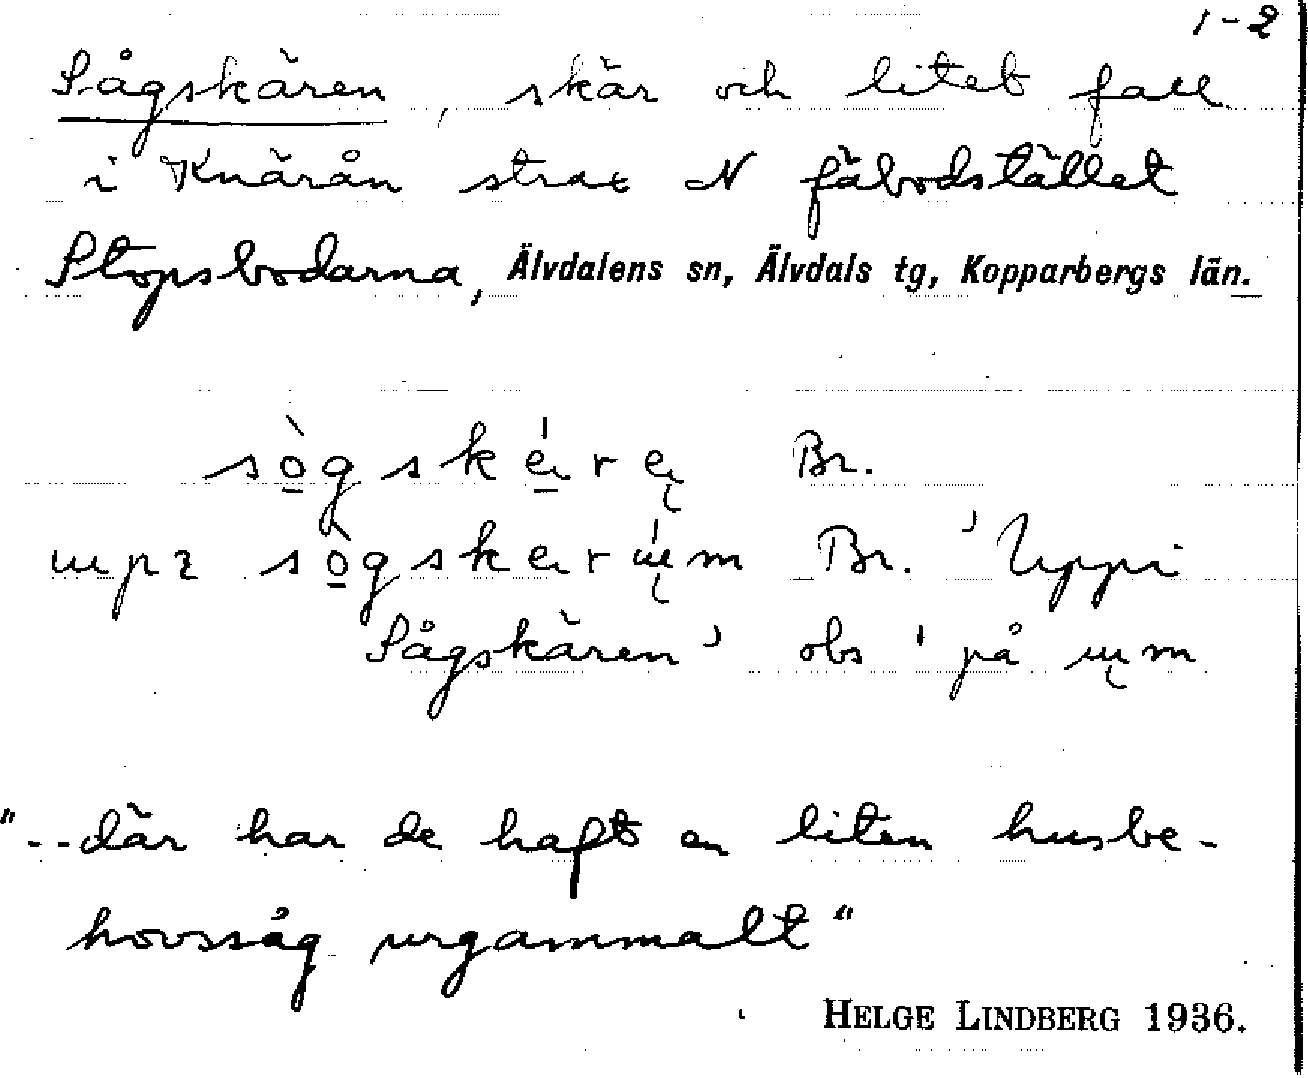 1-2
Sågskären, skär och litet fall
i Knärån strax N fäbodstället
Stopsbodarna, Älvdalens sn, Älvdals tg, Kopparbergs län.
Br.
Br. 'Uppi
Sågskären' obs ' på
"--där har de haft en liten husbe-
hovssåg urgammalt"
HELGE LINDBERG 1936.